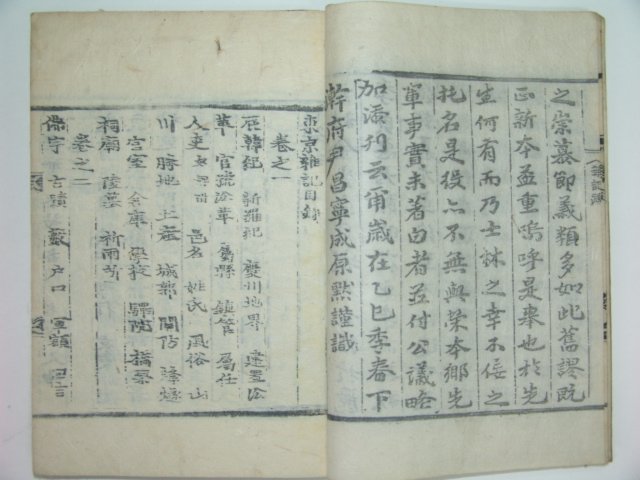 之崇慕節義類多如此舊謬旣
正新本孟重嗚呼是擧也於先
生何有而乃士林之幸不佞之
托名是役亦不無與榮本鄕先
輩事實未著白者並付公議略
加添刊云爾歲在乙巳季春下
澣府尹昌寧成原黙謹識
東京雜記目錄
卷之一
辰韓紀 新羅紀 慶州地界 建置沿
革 官號沿革 屬縣 鎭管 屬任
人吏 邑名 姓氏 風俗 山
川 勝地 土産 城郭 關防 烽燧
宮室 倉庫 學校 驛院 橋梁
祠廟 陵墓 祈雨所
卷之二
佛宇 古蹟 戶口 軍額